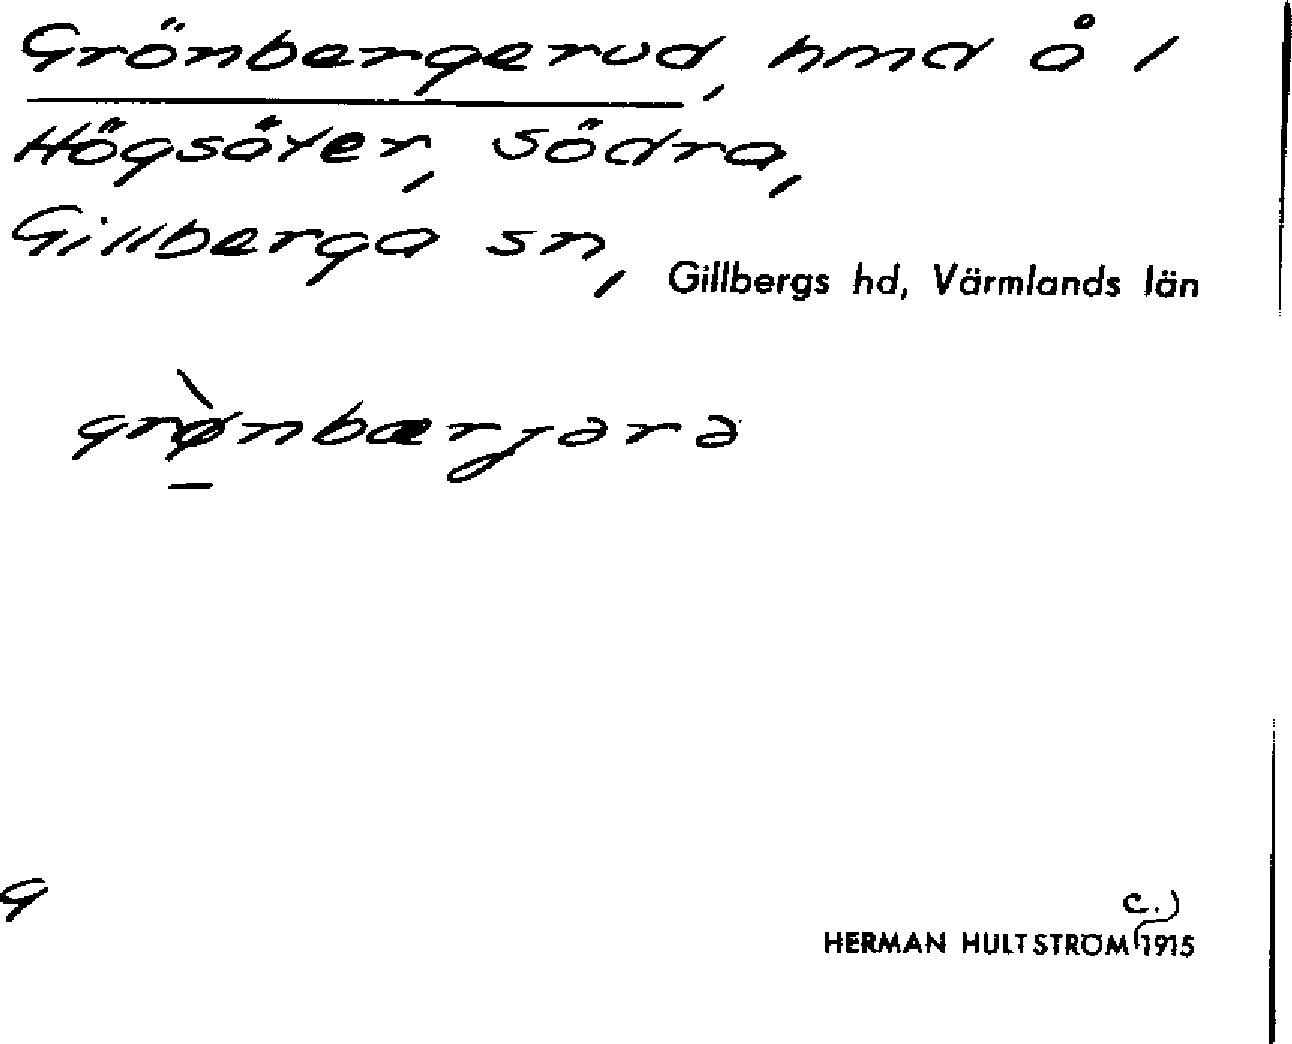 Grönbergerud, hmd å 1
Högsäter, Södra,
Gillberga sn, Gillbergs hd, Värmlands län
grø̀nbærjərə
g
c.)
HERMAN HULTSTRÖM 1915